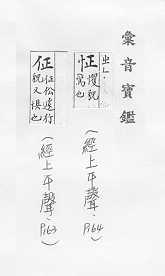 彙音寶鑑
怔
懼貌
驚也
(經上平聲.P.164)
征
征伀遠行
貌又懼也
(經上平聲.P.163)